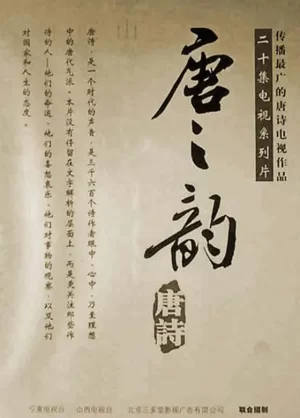 传播最广的唐诗电视作品
二十集电视系列片
唐之韵
唐詩
唐诗，是一个时代的声音，是三千六百个诗作者眼中、心中，乃至理想
中的唐代气派。本片没有停留在文字解析的层面上，而是更关注那些作
诗的人——他们的命运，他们的喜怒哀乐，他们对事物的观察，以及他们
对国家和人生的态度。
宁夏电视台 山西电视台 北京三多堂影视广告有限公司 联合攝制